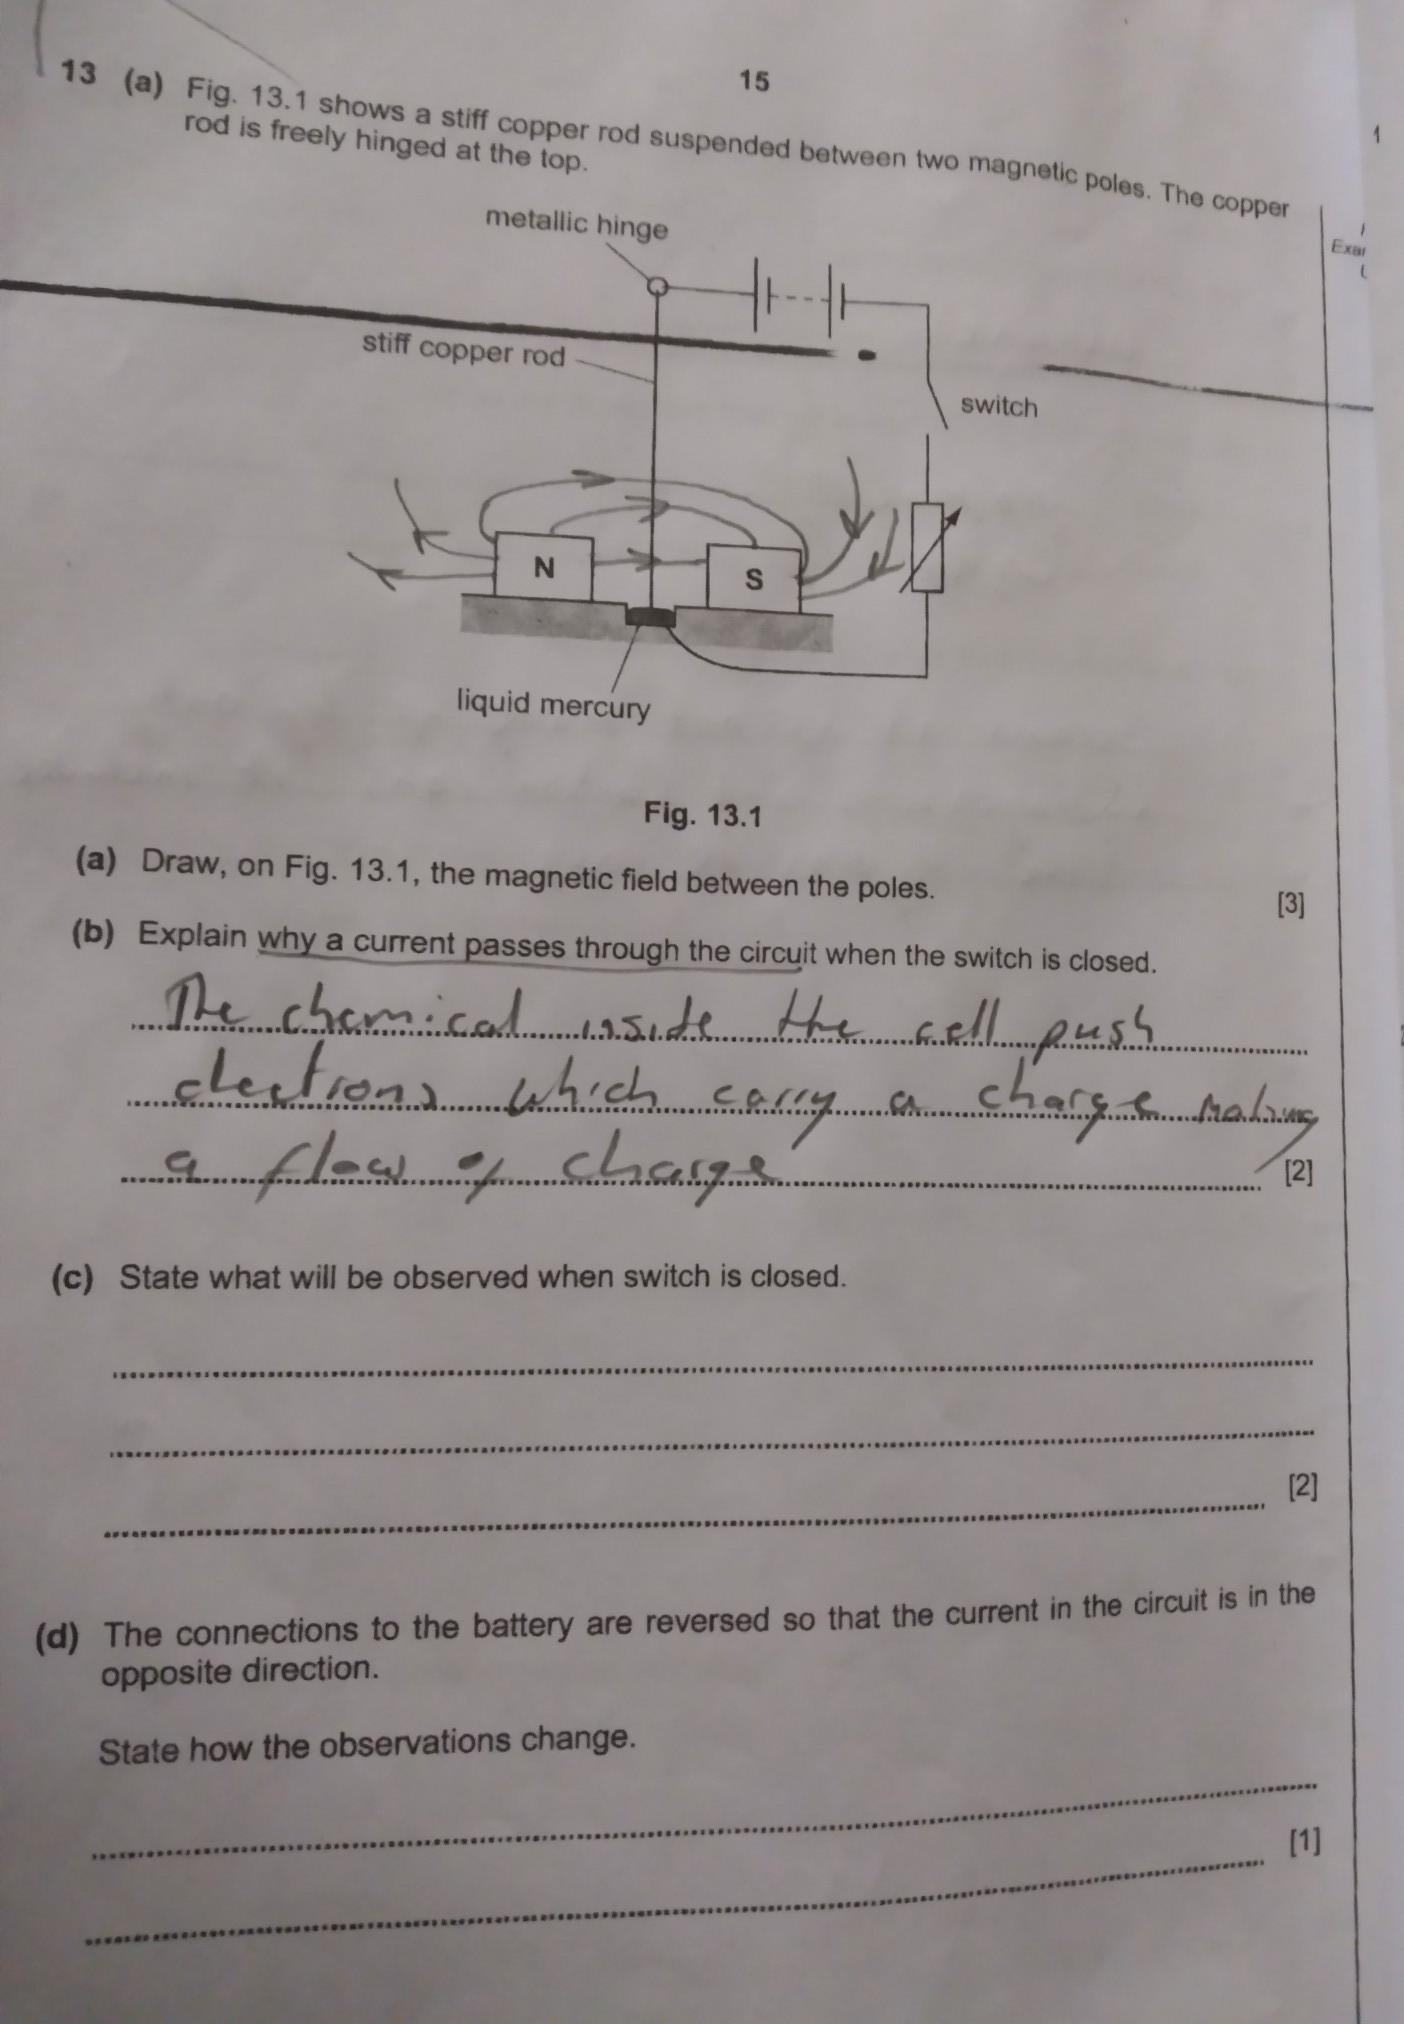 15
13 (a) Fig. 13.1 shows a stiff copper rod suspended between two magnetic poles. The copper
rod is freely hinged at the top.
metallic hinge
stiff copper rod
switch
N
S
liquid mercury
Fig. 13.1
(a) Draw, on Fig. 13.1, the magnetic field between the poles.
[3]
(b) Explain why a current passes through the circuit when the switch is closed.
The chemical inside the cell push
electrons which carry a charge making
a flow of charge
[2]
(c) State what will be observed when switch is closed.
[2]
(d) The connections to the battery are reversed so that the current in the circuit is in the
opposite direction.
State how the observations change.
[1]